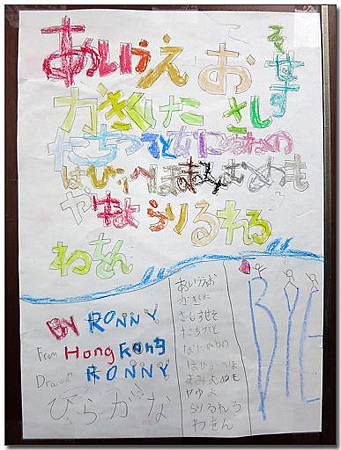 あいうえお
かきくけこ さしすせそ
たちつてとなにぬねの
はひふへほまみむめも
やゆよ らりるれろ
わをん
BY RONNY
From Hong Kong
RONNY
ひらがな
あいうえお
かきくけこ
さしすせそ
たちつてと
なにぬねの
はひふへほ
まみむめも
やゆよ
らりるれろ
わをん
BYE